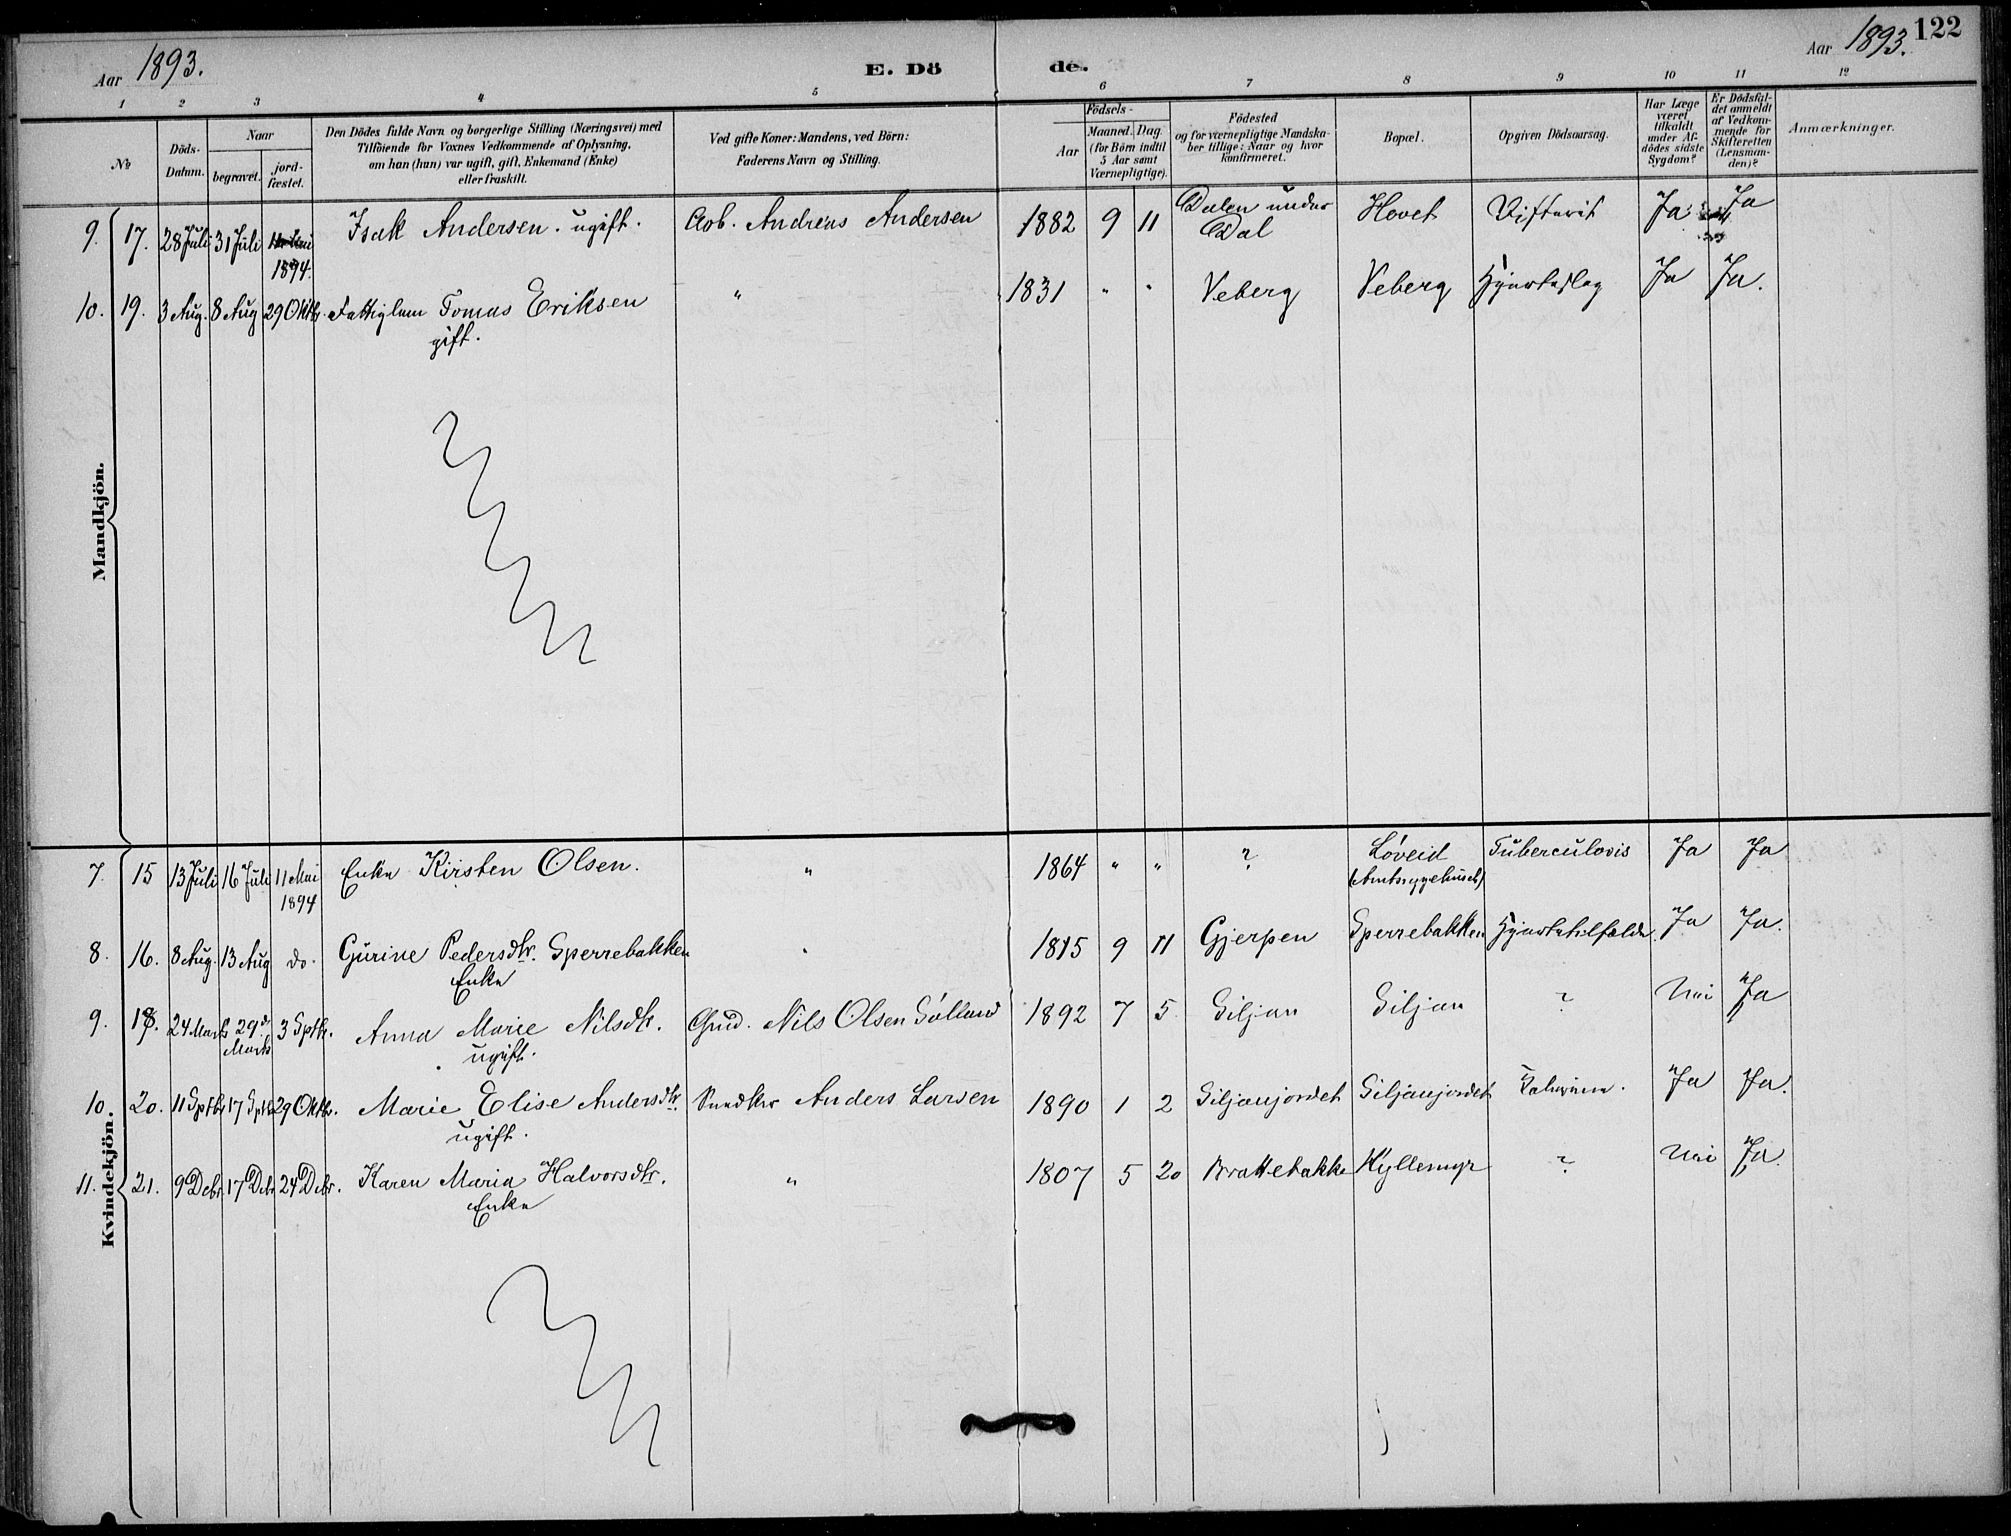 Aar 1893. E. Dö de. Aar 1893. 122
1 2 3 4 5 6 7 8 9 10 11 12
№ Döds-Datum. Naar begravet. jord-fæstet. Den Dödes fulde Navn og borgerlige Stilling (Næringsvei) med Tilföiende for Voxnes Vedkommende af Oplysning, om han (hun) var ugift, gift, Enkemand (Enke) eller fraskilt. Ved gifte Koner: Mandens, ved Börn: Faderens Navn og Stilling. Födsels- Aar Maaned. Dag. (for Börn indtil 5 Aar samt Værnepligtige). Födested og for værnepligtige Mandskaber tillige: Naar og hvor konfirmeret. Bopæl. Opgiven Dödsaarsag. Har Læge været tilkaldt under Afdödes sidste Sygdom? Er Dödsfaldet anmeldt af Vedkommende for Skifteretten (Lensmanden)? Anmærkninger.
Mandkjön.
9. 17. 28 Juli 31 Juli 11 Mai Isak Andersen. ugift. Arb. Andreas Andersen 1882 9 11 Dalen under Hovet Difterit Ja Ja
1894. Dal
10. 19. 3 Aug. 8 Aug 29 Oktb. Fattiglem Tomas Eriksen " 1831 " " Veberg Veberg Hjerteslag Ja Ja.
gift.
Kvindekjön.
7. 15 13 Juli 16 Juli 11 Mai Enke Kirsten Olsen. " 1864 " " ? Løveid Tuberculosis Ja Ja
1894
8. 16. 8 Aug. 13 Aug do. Gurine Pedersdtr. Sperrebakken " 1815 9 11 Gjerpen Sperrebakken Hjertetilfælde. Ja Ja.
Enke
9. 18. 24 Marts 29d 3 Sptb. Anna Marie Nilsdtr. Gmd. Nils Olsen 1892 7 5 Siljan Siljan ? Nei Ja
Marts ugift.
10. 20. 11 Sptb 17 Sptb 29 Oktb. Marie Elise Andersdtr. Anders Larsen 1890 1 2 Siljanjordet Siljanjordet Ja Ja.
ugift.
11. 21. 9 Debr 17 Debr 24 Debr. Karen Maria Halvorsdtr. " 1807 5 20 Brattebakke Kyllemyr ? Nei Ja.
Enke